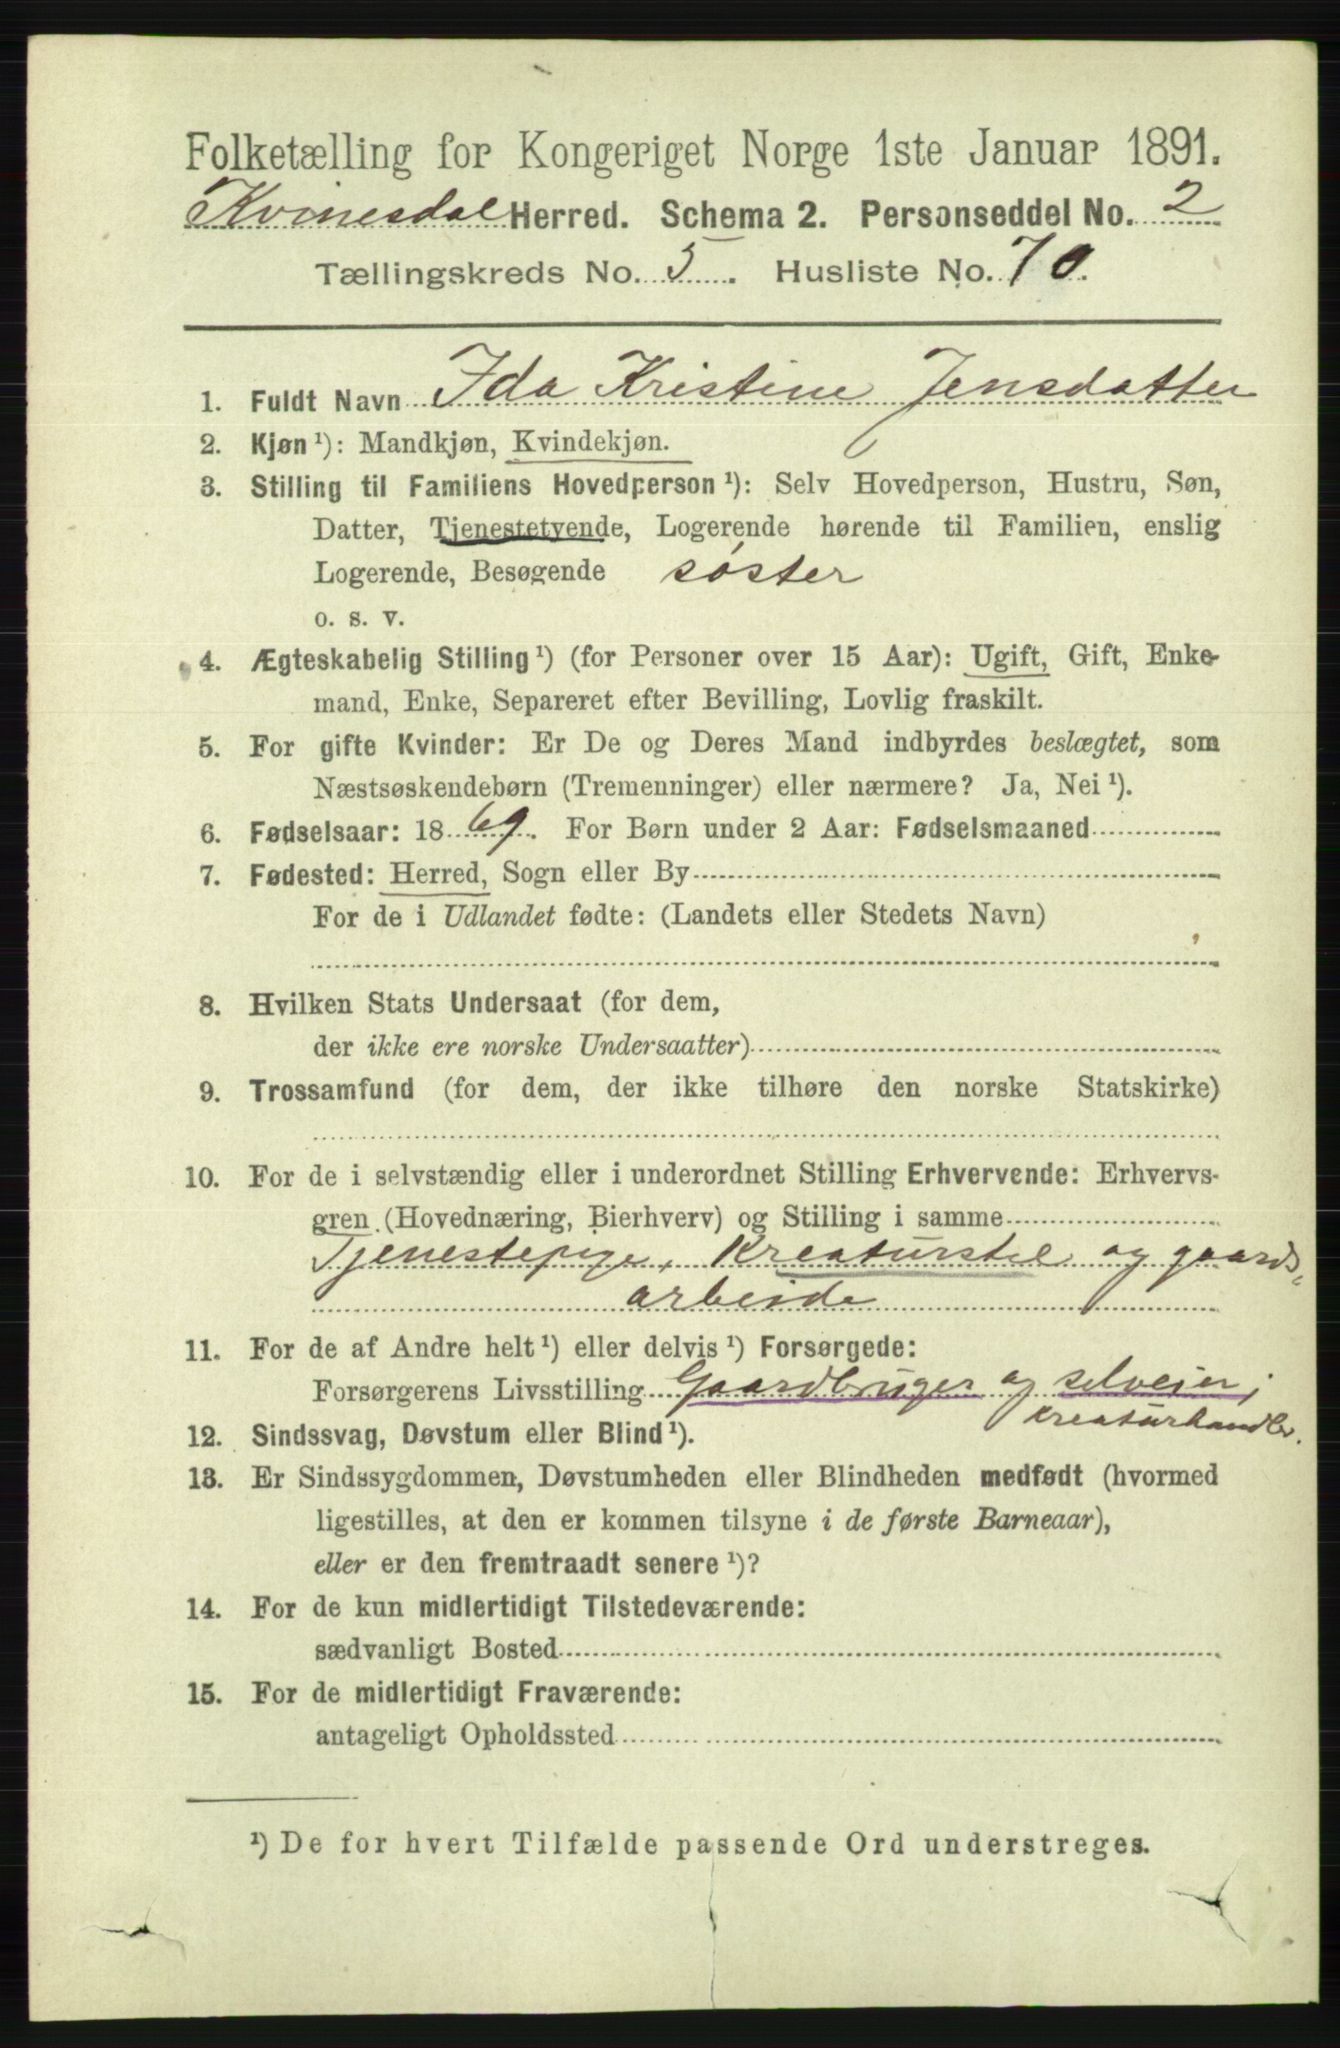 Folketælling for Kongeriget Norge 1ste Januar 1891.
Kvinesdal Herred. Schema 2. Personseddel No. 2
Tællingskreds No. 5. Husliste No. 70.
1. Fuldt Navn Ida Kristine Jensdatter
2. Kjøn ¹): Mandkjøn, Kvindekjøn.
3. Stilling til Familiens Hovedperson ¹): Selv Hovedperson, Hustru, Søn,
Datter, Tjenestetyende, Logerende hørende til Familien, enslig
Logerende, Besøgende søster
o. s. v.
4. Ægteskabelig Stilling ¹) (for Personer over 15 Aar): Ugift, Gift, Enke-
mand, Enke, Separeret efter Bevilling, Lovlig fraskilt.
5. For gifte Kvinder: Er De og Deres Mand indbyrdes beslægtet, som
Næstsøskendebørn (Tremenninger) eller nærmere? Ja, Nei ¹).
6. Fødselsaar: 18 69. For Børn under 2 Aar: Fødselsmaaned
7. Fødested: Herred, Sogn eller By
For de i Udlandet fødte: (Landets eller Stedets Navn)
8. Hvilken Stats Undersaat (for dem,
der ikke ere norske Undersaatter)
9. Trossamfund (for dem, der ikke tilhøre den norske Statskirke)
10. For de i selvstændig eller i underordnet Stilling Erhvervende: Erhvervs-
gren (Hovednæring, Bierhverv) og Stilling i samme
Tjenestepige, Kreaturstel og gaards-
arbeide
11. For de af Andre helt ¹) eller delvis ¹) Forsørgede:
Forsørgerens Livsstilling Gaardbruger og selveier;
kreaturhandler.
12. Sindssvag, Døvstum eller Blind ¹).
13. Er Sindssygdommen, Døvstumheden eller Blindheden medfødt (hvormed
ligestilles, at den er kommen tilsyne i de første Barneaar),
eller er den fremtraadt senere ¹)?
14. For de kun midlertidigt Tilstedeværende:
sædvanligt Bosted
15. For de midlertidigt Fraværende:
antageligt Opholdssted
¹) De for hvert Tilfælde passende Ord understreges.